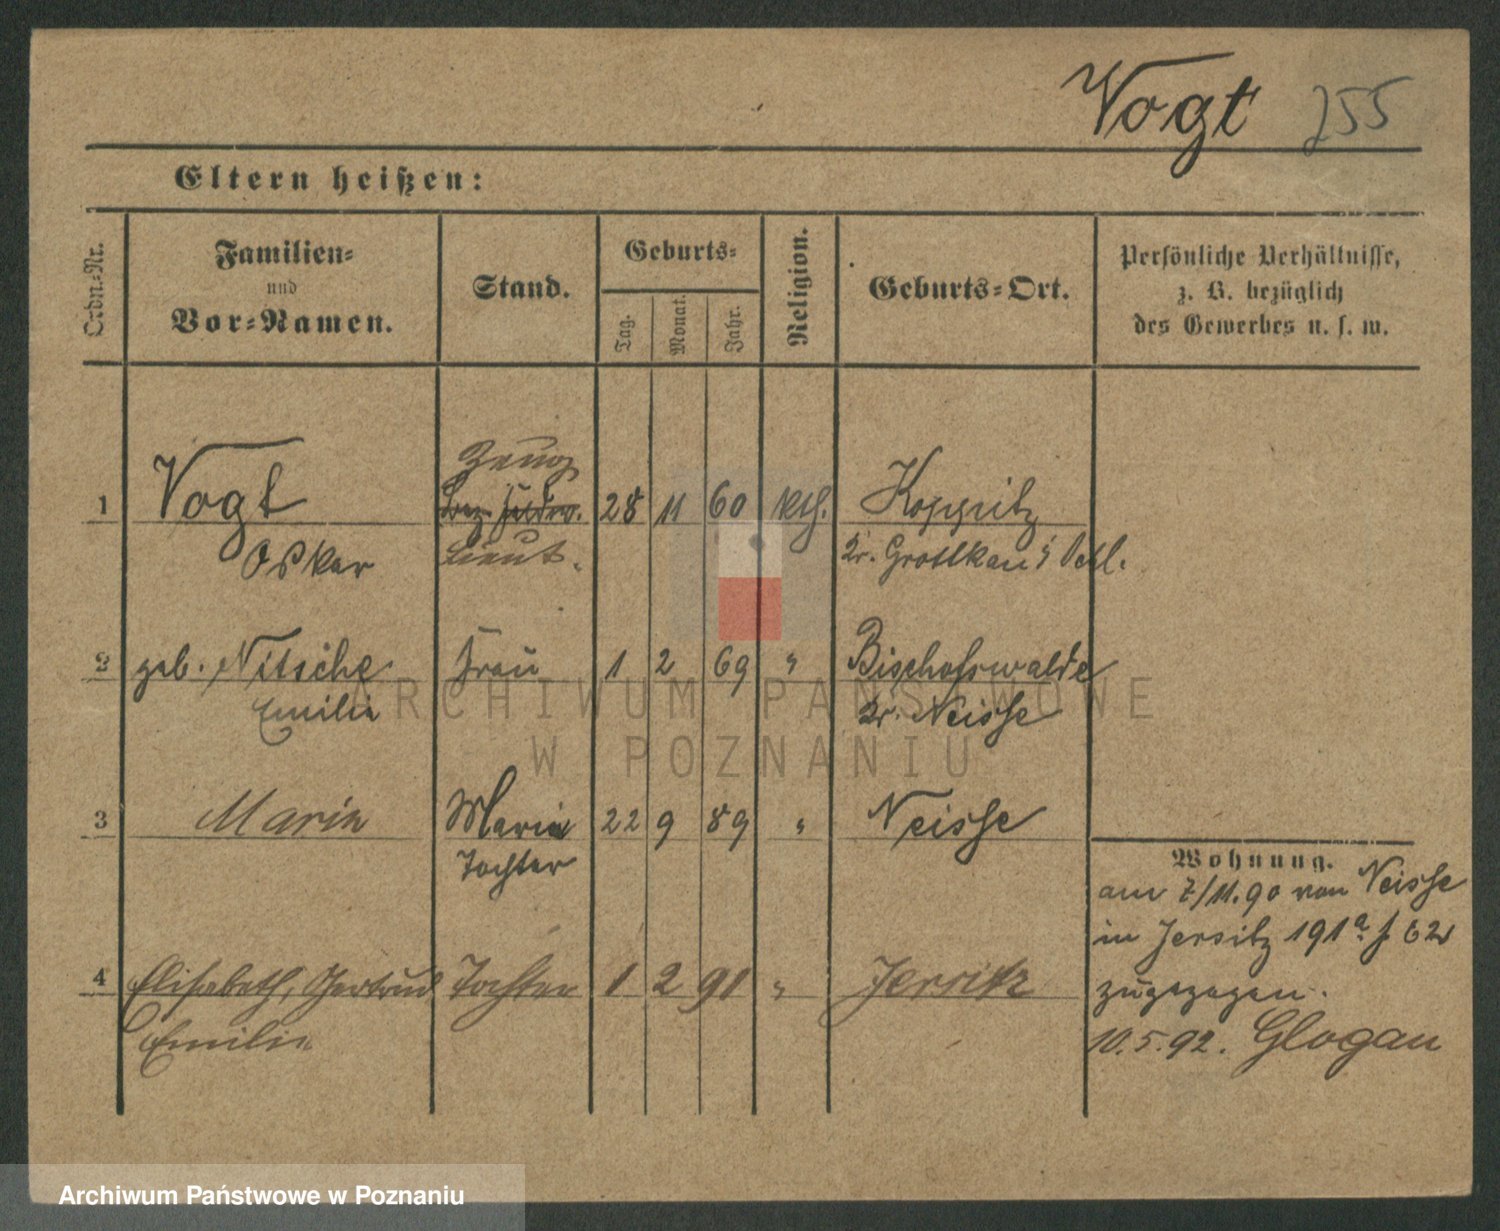 Vogt 255
Eltern heißen:
Ordn.-Nr.
Familien-
und
Vor-Namen.
Stand.
Geburts-
Tag.
Monat.
Jahr.
Religion.
Geburts-Ort.
Persönliche Verhältnisse,
z. B. bezüglich
des Gewerbes u. s. w.
Zeug
1 Vogt 28 11 60 kth. Koppitz
Oskar Lieut. Kr. Grottkau
2 geb. Nitsche Frau 1 2 69 " Bischofswalde
Emilie Kr. Neisse
ARCHIWUM PAŃSTWOWE
W POZNANIU
3 Marie Marie 22 9 89 " Neisse
Tochter
Wohnung.
am 7/11.90 von Neisse
in Jersitz 191a
4 Elisabeth, Gertrud Tochter 1 2 91 " Jersitz
Emilie
zugezogen.
10.5.92. Glogau
Archiwum Państwowe w Poznaniu